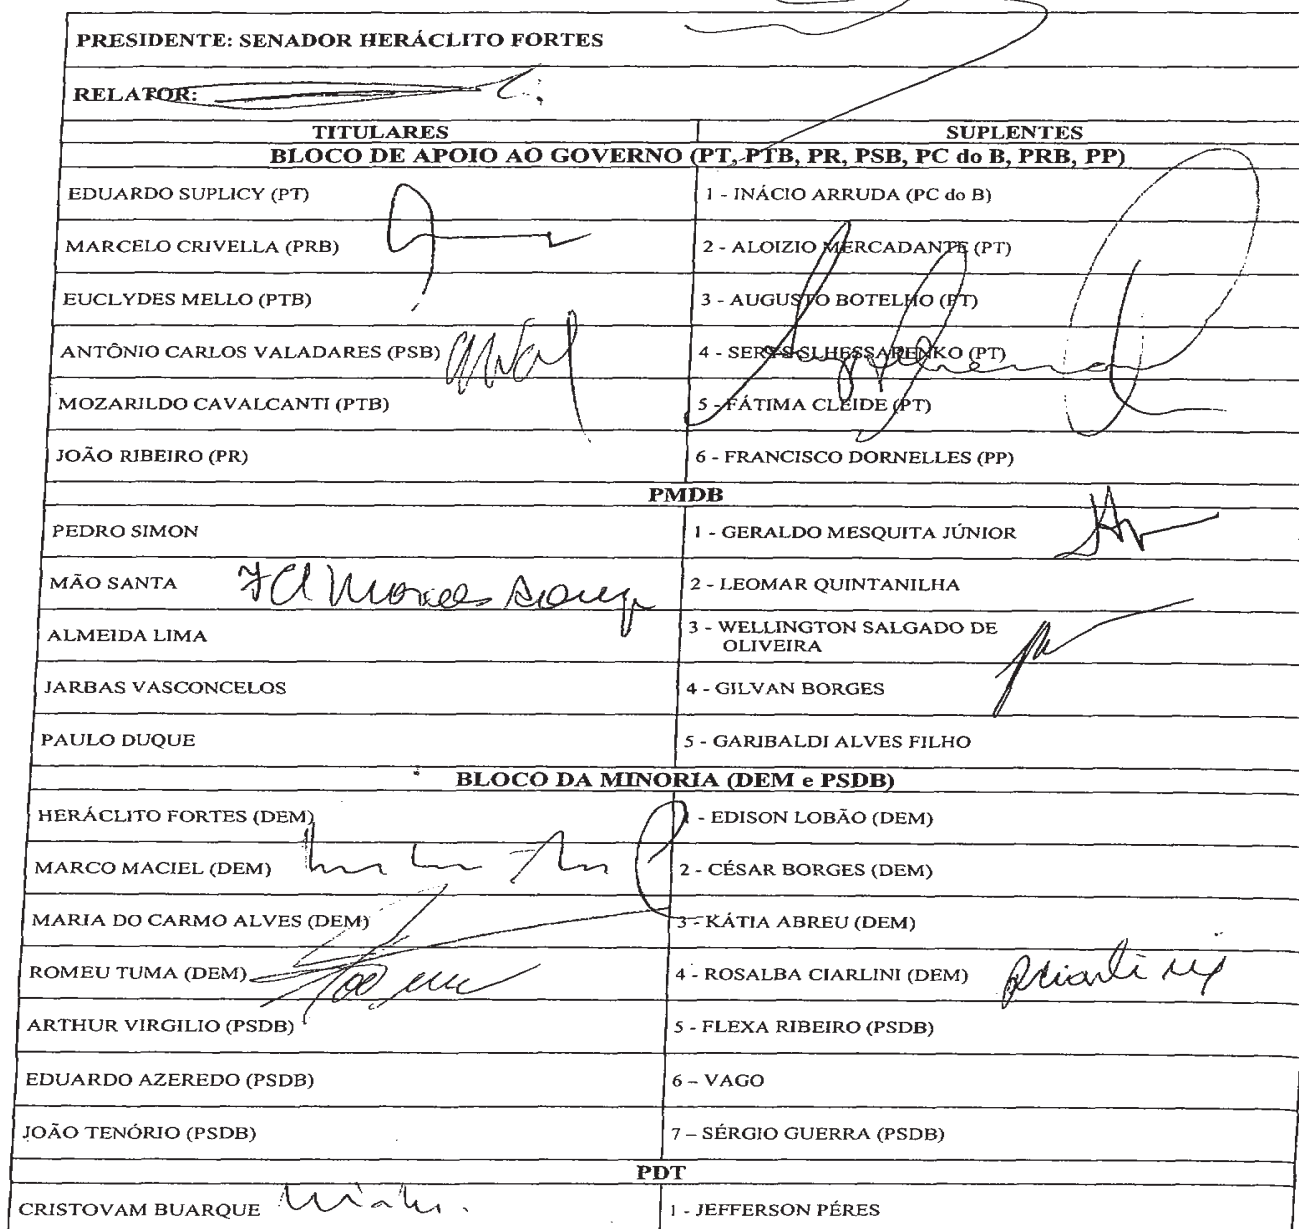 PRESIDENTE: SENADOR HERÁCLITO FORTES
RELATOR:
TITULARES SUPLENTES
BLOCO DE APOIO AO GOVERNO (PT, PTB, PR, PSB, PC do B, PRB, PP)
EDUARDO SUPLICY (PT) 1 - INÁCIO ARRUDA (PC do B)
MARCELO CRIVELLA (PRB) 2 - ALOIZIO MERCADANTE (PT)
EUCLYDES MELLO (PTB) 3 - AUGUSTO BOTELHO (PT)
ANTÔNIO CARLOS VALADARES (PSB) 4 - SERYS SLHESSARENKO (PT)
MOZARILDO CAVALCANTI (PTB) 5 - FÁTIMA CLEIDE (PT)
JOÃO RIBEIRO (PR) 6 - FRANCISCO DORNELLES (PP)
PMDB
PEDRO SIMON 1 - GERALDO MESQUITA JÚNIOR
MÃO SANTA 2 - LEOMAR QUINTANILHA
ALMEIDA LIMA 3 - WELLINGTON SALGADO DE
OLIVEIRA
JARBAS VASCONCELOS 4 - GILVAN BORGES
PAULO DUQUE 5 - GARIBALDI ALVES FILHO
BLOCO DA MINORIA (DEM e PSDB)
HERÁCLITO FORTES (DEM) 1 - EDISON LOBÃO (DEM)
MARCO MACIEL (DEM) 2 - CÉSAR BORGES (DEM)
MARIA DO CARMO ALVES (DEM) 3 - KÁTIA ABREU (DEM)
ROMEU TUMA (DEM) 4 - ROSALBA CIARLINI (DEM)
ARTHUR VIRGILIO (PSDB) 5 - FLEXA RIBEIRO (PSDB)
EDUARDO AZEREDO (PSDB) 6 – VAGO
JOÃO TENÓRIO (PSDB) 7 – SÉRGIO GUERRA (PSDB)
PDT
CRISTOVAM BUARQUE 1 - JEFFERSON PÉRES